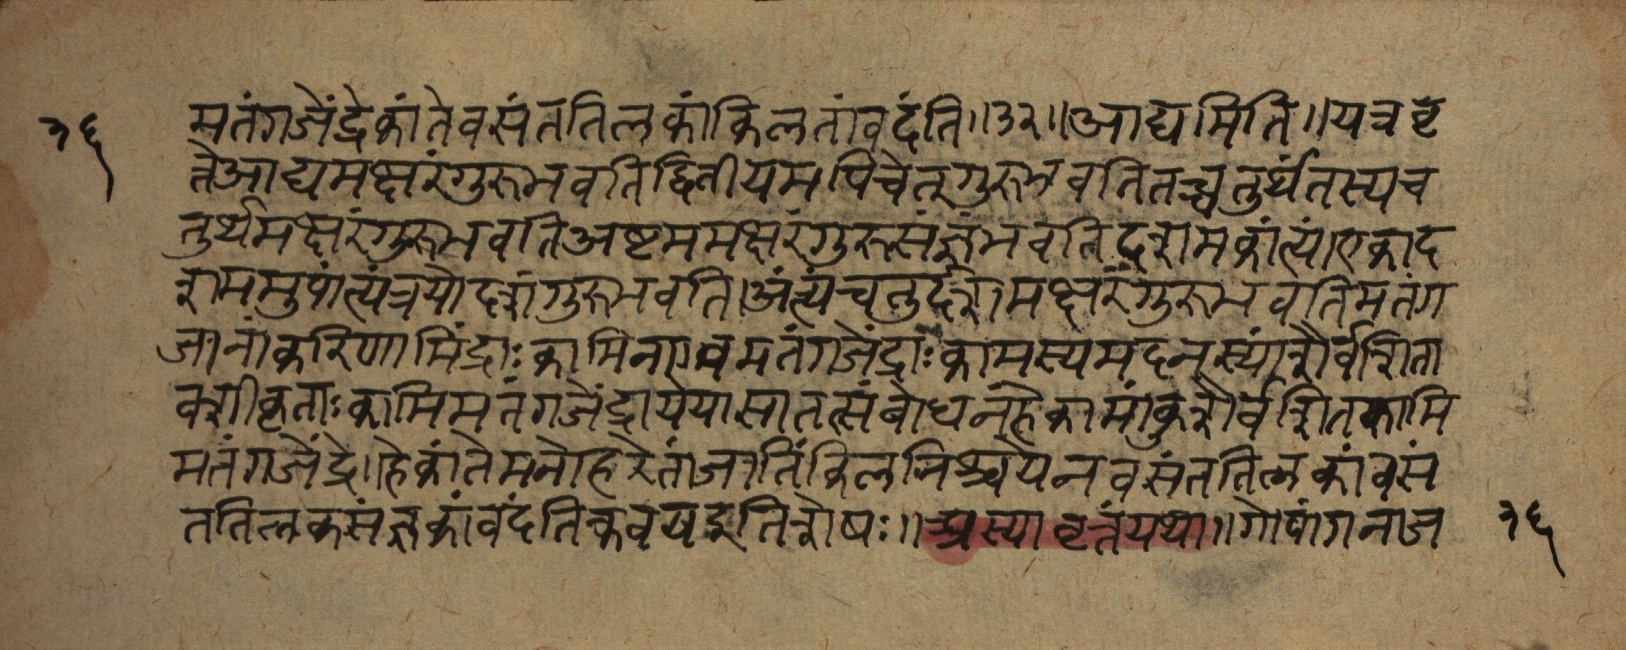 १६
मतंगजेंद्रेकांतेवसंततिलकांकिलतांवदंति॥३२॥आद्यमिति॥यत्रवृ
त्तेआद्यमक्षरंगुरुभवतिद्वितीयमपिचेत्गुरुभवतितच्चतुर्थंतस्यच
तुर्थमक्षरंगुरुभवतिअष्टममक्षरंगुरुसंज्ञंभवतिदशमकांत्यं।एकाद
शममुपांत्यंत्रयोदशंगुरुभवति।अंत्यंचतुर्दशमक्षरंगुरुभवतिमतंग
जानांकरिणामिंद्राःकामिनएवमतंगजेंद्राःकामस्यमदनस्यांशैर्वशिता
वशीकृताःकामिमतंगजेंद्राययासातत्संबोधनंहेकामांकुशैर्वशितकामि
मतंगजेंद्रे।हेकांतेमनोहरेतांजातिंकिलनिश्चयेनवसंततिलकांवसं
ततिलकसंज्ञकांवदंतिकवयइतिशेषः॥अस्यावृत्तंयथा॥गोपांगनाज
१६